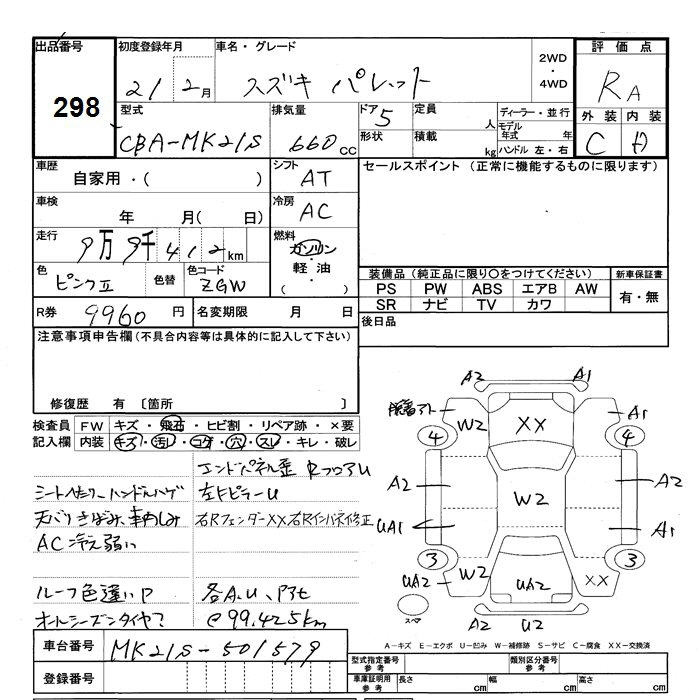 出品番号 初度登録年月 車名・グレード 2WD・4WD 評価点
298 21 2月 スズキ パレット RA
型式 排気量 ドア 5 定員 人 ディーラー・並行 外装 内装
CBA-MK21S 660cc 形状 積載 kg モデル年式 年 ハンドル 左・右 C D
車歴 シフト セールスポイント (正常に機能するものに限ります)
自家用・( ) AT
車検 冷房
年 月( 日) AC
走行 燃料
9万9千412km ガソリン・軽油・( )
色 色替 色コード
ピンクⅡ ZGW
装備品(純正品に限り○をつけてください) 新車保証書
PS PW ABS エアB AW 有・無
SR ナビ TV カワ
R券 9960円 名変期限 月 日 後日品
注意事項申告欄(不具合内容等は具体的に記入して下さい)
修復歴 有 〔箇所 〕
検査員記入欄 FW キズ・飛石・ヒビ割・リペア跡・×要
内装 キズ・汚レ・コゲ・穴・スレ・キレ・破レ
エンドパネル歪 RフロアU
シートヘタリ、ハンドルハゲ
天バリきばみ、
右Rフェンダー××右Rインパネ修正
AC冷え弱い
ルーフ色違いP 各A、U、Pｱﾄ
オールシーズンタイヤ @99,425km
A2 A1
W2 ×× A1
4 4
A2 W2 A2
UA1 A1
3 3
UA2 W2 UA2 ××
スペア A2 U2
A-キズ E-エクボ U-凹み W-補修跡 S-サビ C-腐食 XX-交換済
車台番号 MK21S-501579
登録番号
型式指定番号 参考 類別区分番号 参考
車庫証明用 参考 長さ cm 幅 cm 高さ cm